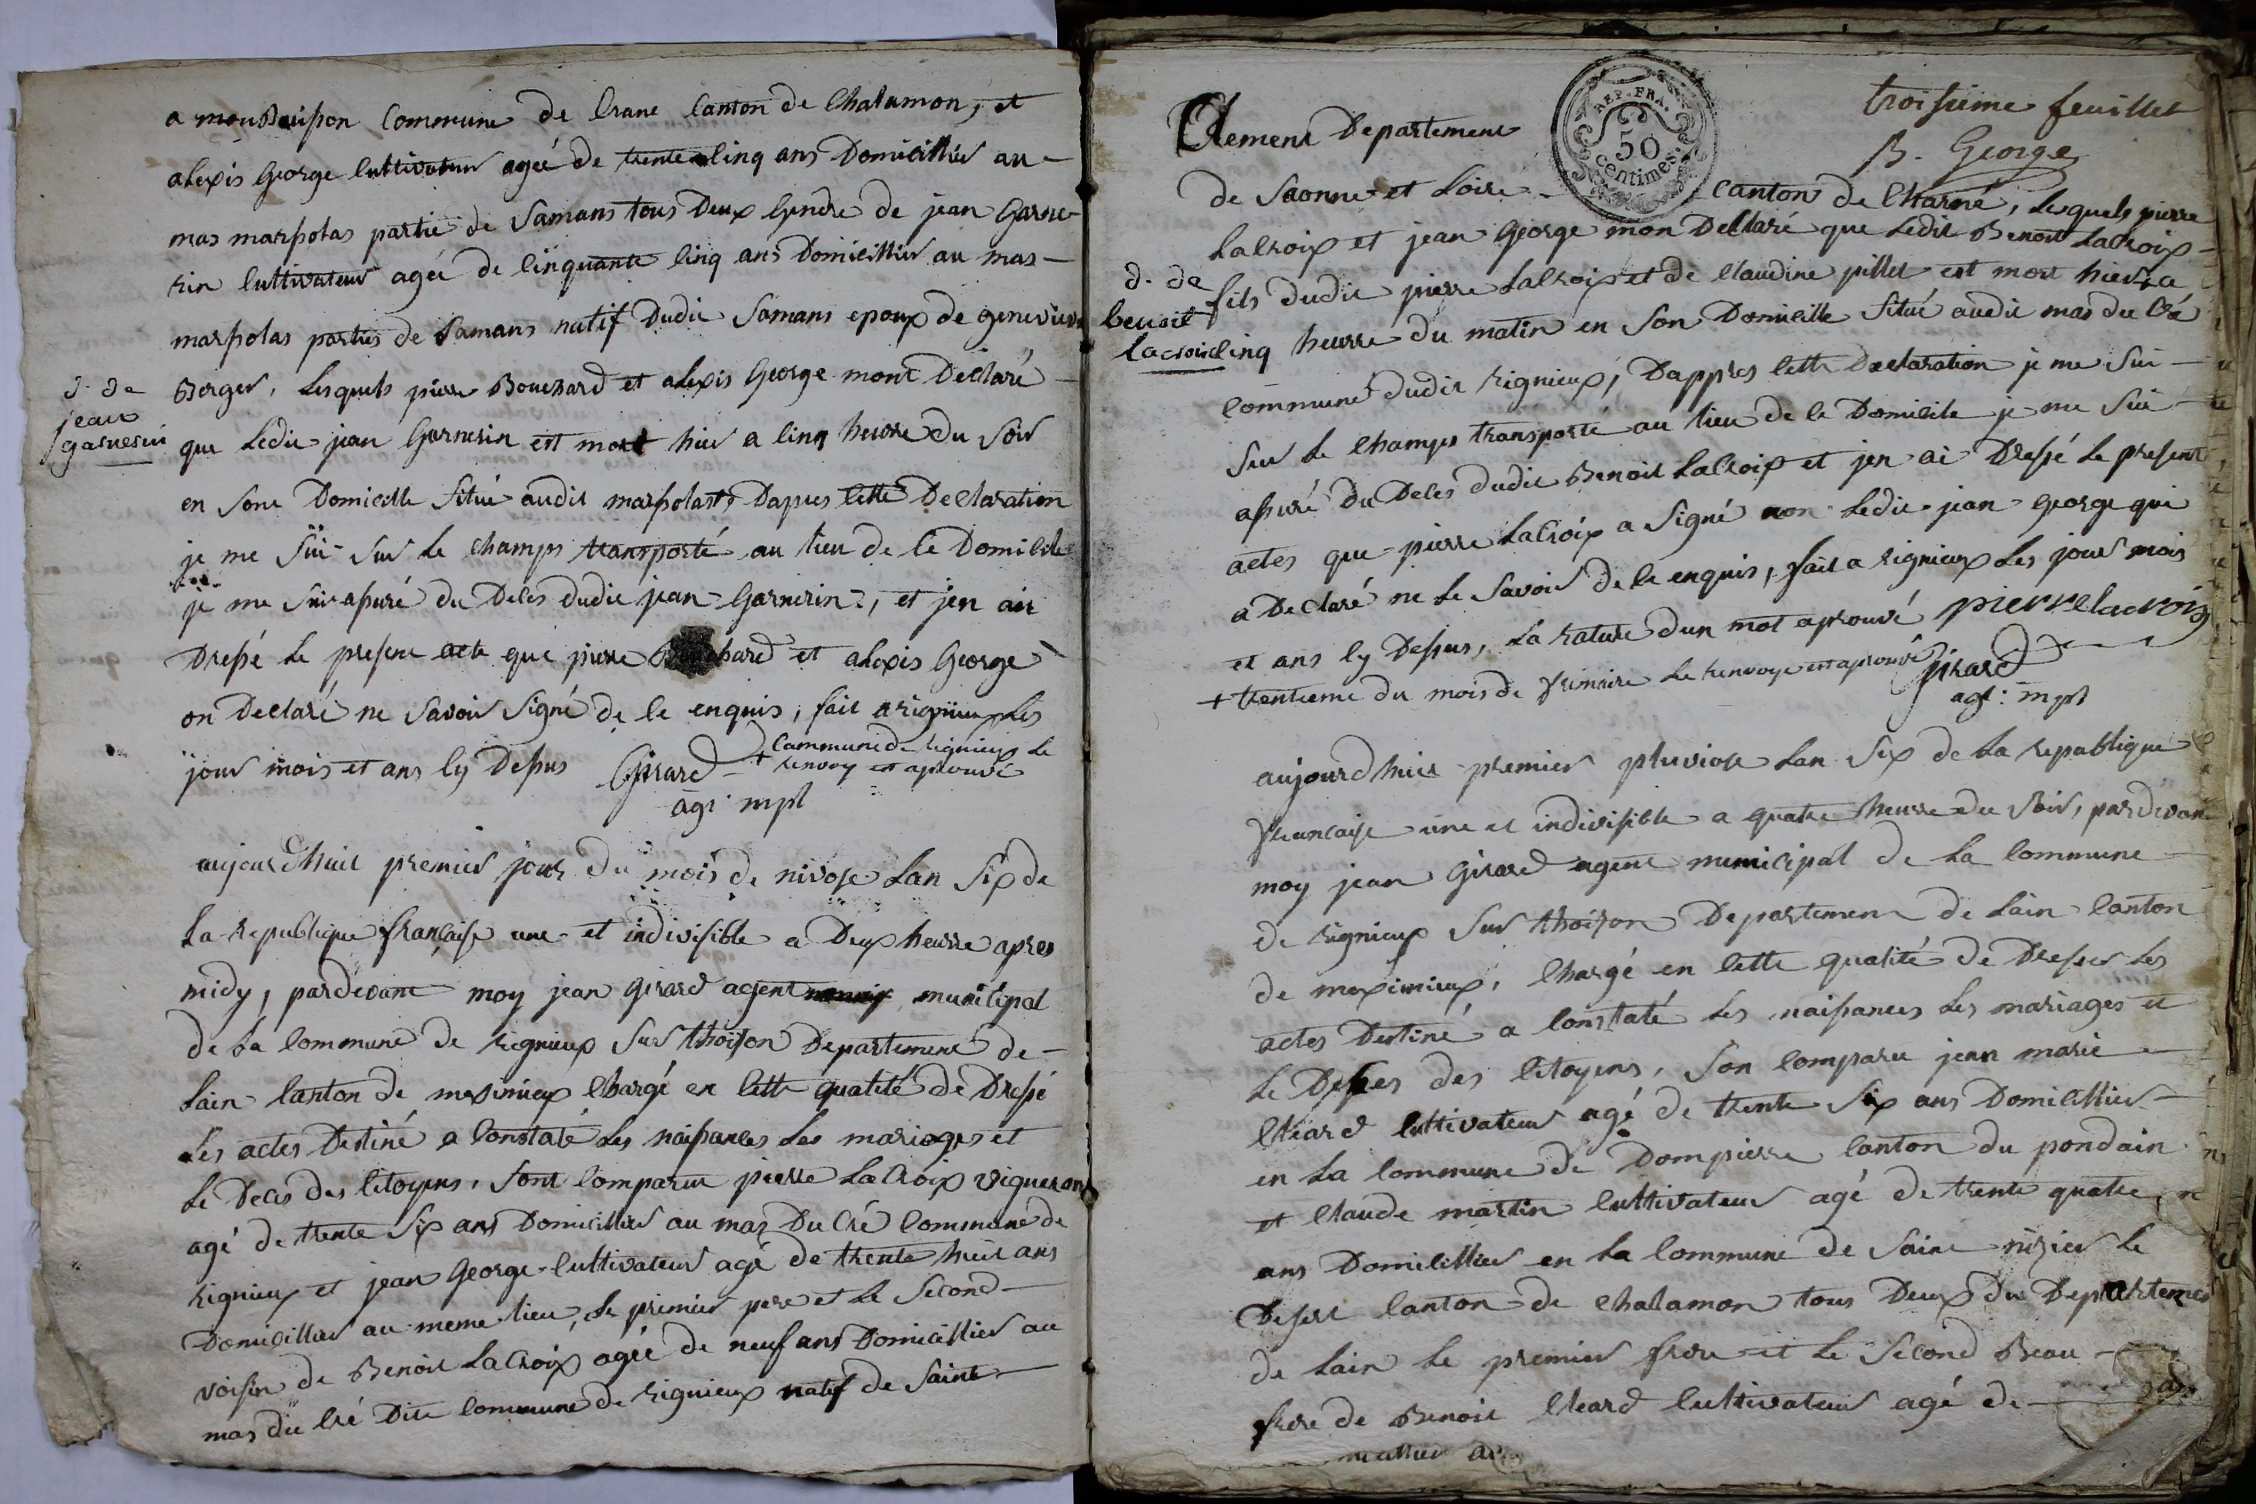 a monBuisson Commune de Crane Canton de Chalamon, et
alexis George Cultivateur agée de trente Cinq ans Domicillier au
mas marsolas partie de Samans tous Deux Gendre de jean Garne-
rin Cultivateur agée de Cinquante Cinq ans Domicillier au mas
marsolas parties de Samans natif Dudit Samans epoux de genevieve
d. de
jean
garnerin
Berger, Lesquels pierre Bouchard et alexis George mont Déclaré
que Ledit jean Garnerin est mort hier a Cinq heure du Soir
en Sone Domicille Situé audit marsolas, Dapres Cette Declaration
je me Sui Sur Le Champs transporté au lieu de Ce Domicile
je me Sui asuré du Decés dudit jean Garnerin, et jen ait
Dressé Le present acte que pierre Bouchard et alexis George
on Declaré ne Savoir Signé de Ce enquis, fait a rignieux Les
jour mois et ans Cy Desus Girard + Commune de rignieux Le
renvoy est aprouvé
agt. mpl
aujourdhuit premier jour du mois de nivose Lan Six de
La republique française une et indivisible a Deux heure apres
midy, pardevant moy jean Girard agent municipal
de La Commune de rignieux Sur thoison Departement de
Lain Canton de meximieux Chargé en Cette qualité de Dressé
Les actes Destiné a Constaté Les naisances Les mariages et
Le Decés des Citoyens, Sont Comparu pierre LaCroix vigneron
agé de trente Six ans Domicillier au mas Du Cré Commune de
rignieux et jean George Cultivateur agé de trente huit ans
Domicillier au meme lieu, Le premier pere et Le Second
voisin de Benoit LaCroix agée de neuf ans Domicillier au
mas du Cré Dite Commune de rignieux natif de Saint
troisieme feuillet
B. George
REP. FRA.
50
centimes.
Clement Departement
de Saonne et Loire Canton de Charné, Lesquels pierre
LaCroix et jean George mon Declaré que Ledit Benoit LaCroix
d. de
benoit
lacroix
fils dudit pierre LaCroix et de Claudine pillet est mort hier + a
Cinq heurre du matin en Son Domicille Situé audit mas du Cré
Commune dudit rignieux, Dappres Cette Declaration je me Sui
Sur Le Champs transporté au lieu de Ce Domicile je me Sui
asuré du Deces dudit Benoit LaCroix et jen ai Dressé Le present
actes que pierre LaCroix a Signé non Ledit jean George qui
a Declaré ne Le Savoir de Ce enquis, fait a rignieux Les jour mois
et ans Cy Dessus, La rature dun mot aprouvé pierre lacroix
+ trentieme du mois de frimaire Le renvoye est aprouvé Girard
agt. mpl
aujourdhuit premier pluviose Lan Six de La republique
francaise une et indivisible a quatre heurre du Soir, pardevant
moy jean Girard agent municipal de La Commune
de rignieux Sur thoison Departement de Lain Canton
de meximieux, Chargé en Cette qualité de Dresser Les
actes Destiné a Constaté Les naisances Les mariages et
Le Deces des Citoyens, Son Comparu jean marie
Cleard Cultivateur agé de trente Six ans Domicillier
en La Commune de Dompierre Canton du pondain
et Claude martin Cultivateur agé de trente quatre
ans Domicillier en La Commune de Saint nizier Le
Desert Canton de Chalamon tous Deux du Departement
de Lain Le premier frere et Le Second Beau
frere de Benoit Cleard Cultivateur agé de